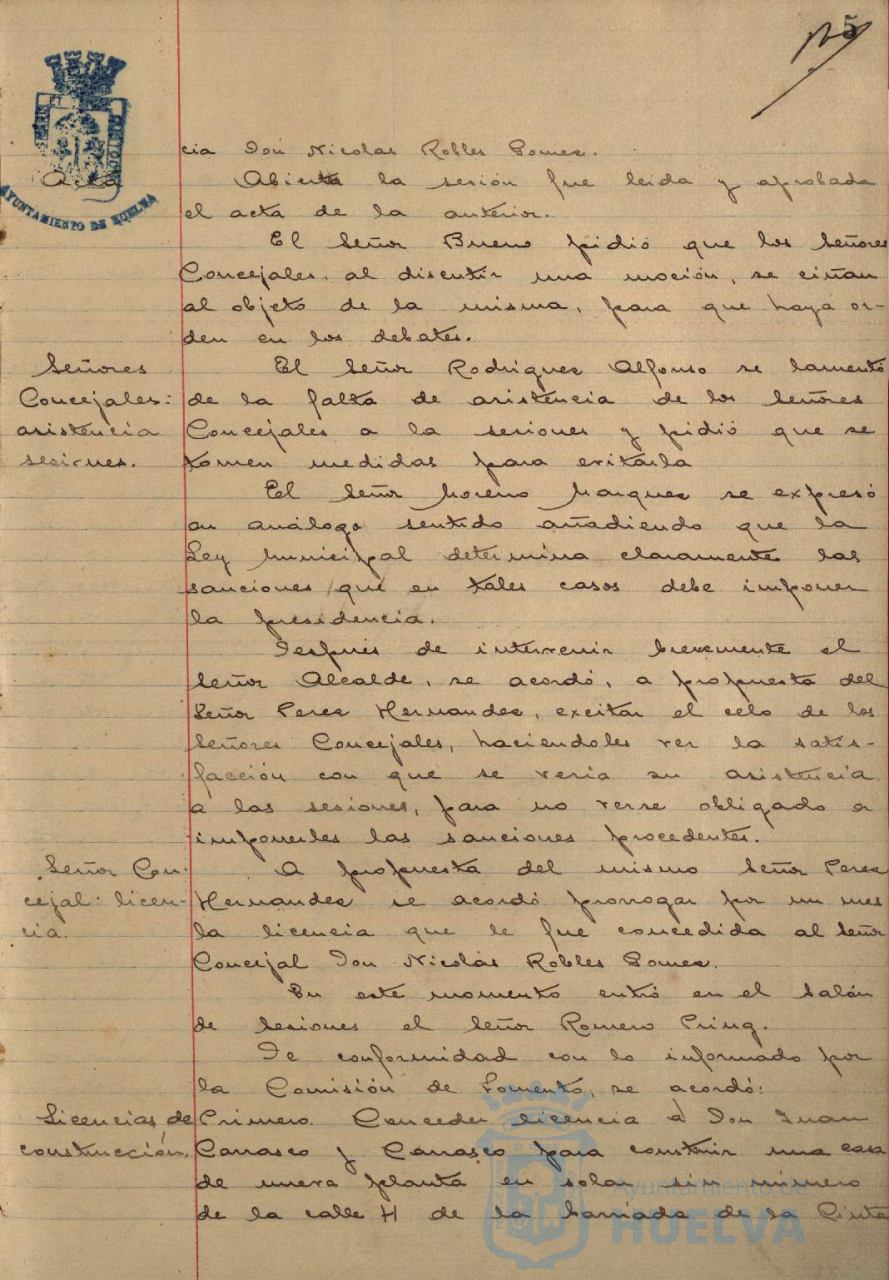 5
cia Don Nicolás Robles Gomez.
AYUNTAMIENTO DE HUELVA
Acta
Abierta la sesión fue leida y aprobada
el acta de la anterior.
El Señor Bueno pidió que los Señores
Concejales, al discutir una moción, se ciñan
al objeto de la misma, para que haya or-
den en los debates.
Señores
Concejales:
asistencia
sesiones.
El Señor Rodriguez Alfonso se lamentó
de la falta de asistencia de los Señores
Concejales a la sesiones y pidió que se
tomen medidas para evitarla
El Señor Moreno Marquez se expresó
en análogo sentido añadiendo que la
Ley Municipal determina claramente las
sanciones que en tales casos debe imponer
la presidencia.
Después de intervenir brevemente el
Señor Alcalde, se acordó, a propuesta del
Señor Perez Hernandez, excitar el celo de los
Señores Concejales, haciendoles ver la satis-
facción con que se veria su asistencia
a las sesiones, para no verse obligado a
imponerles las sanciones procedentes.
Señor Con-
cejal: licen-
cia.
A propuesta del mismo Señor Perez
Hernandez se acordó prorrogar por un mes
la licencia que le fue concedida al Señor
Concejal Don Nicolás Robles Gomez.
En este momento entró en el Salón
de Sesiones el Señor Romero Pring.
De conformidad con lo informado por
la Comisión de Fomento, se acordó:
Licencias de
construcción.
Primero. Conceder licencia a Don Juan
Carrasco y Carrasco para construir una casa
de nueva planta en solar sin número
de la calle H de la barriada de la Cinta
Ayuntamiento de
HUELVA